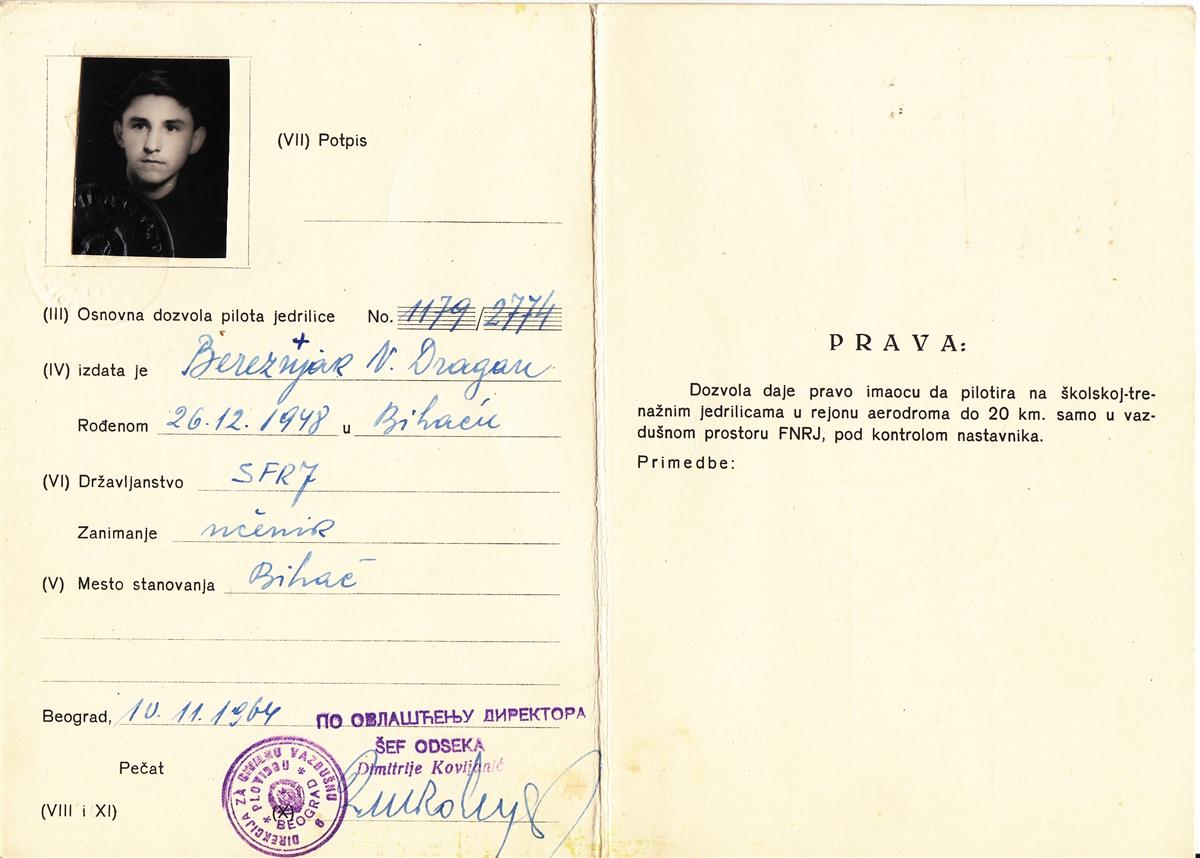 (VII) Potpis
(III) Osnovna dozvola pilota jedrilice No. 1179/2774
(IV) izdata je Bereznjak N. Dragan
Rođenom 26.12.1948 u Bihaću
(VI) Državljanstvo SFRJ
Zanimanje učenik
(V) Mesto stanovanja Bihać
Beograd, 10.11.1964
ПО ОВЛАШЋЕЊУ ДИРЕКТОРА
ŠEF ODSEKA
Pečat
Dimitrije Kovijanić
(VIII i XI)
(X)
DIREKCIJA ZA CIVILNU VAZDUŠNU
PLOVIDBU
* BEOGRAD *
6
PRAVA:
Dozvola daje pravo imaocu da pilotira na školskoj-tre-
nažnim jedrilicama u rejonu aerodroma do 20 km. samo u vaz-
dušnom prostoru FNRJ, pod kontrolom nastavnika.
Primedbe: